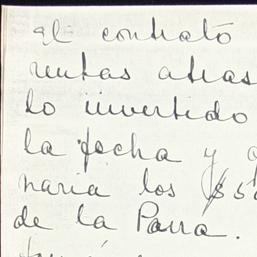 el contrato
rentas atras
lo invertido
la fecha y
naria los $5
de la Parra.